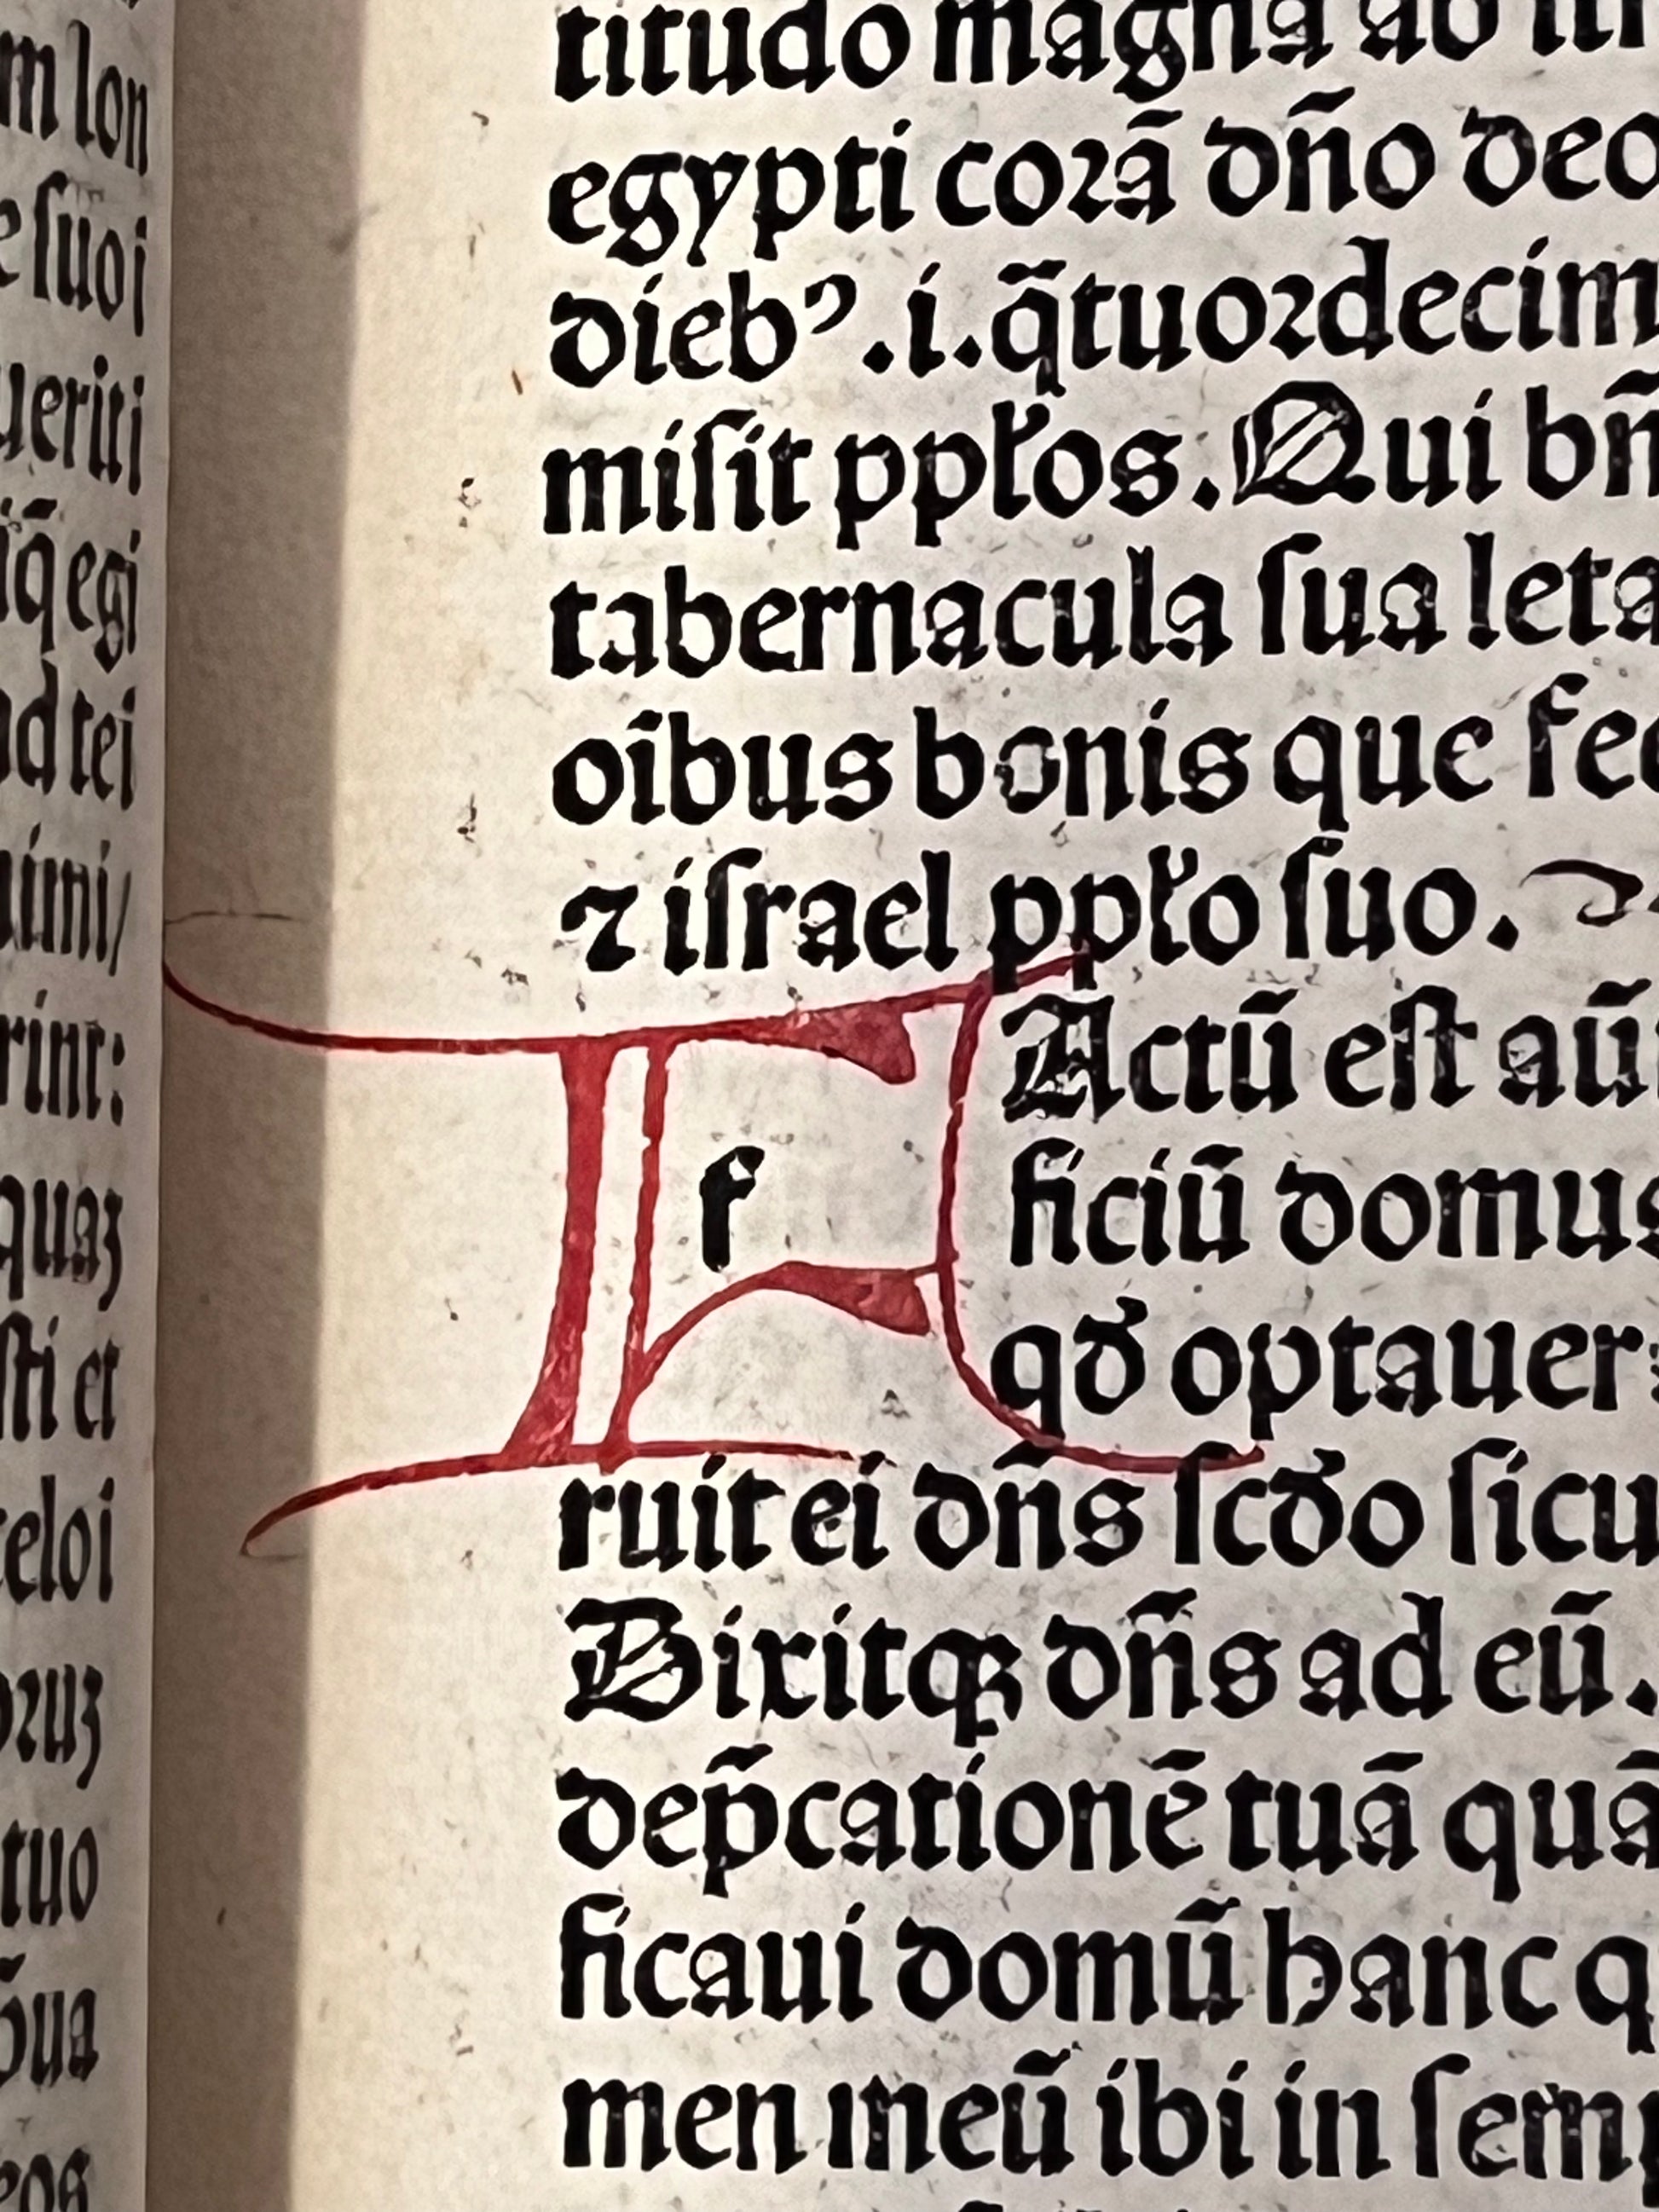 m lon
e ſuoi
ueriti
q̄ egi
ad tei
nimi/
rint:
quaꝫ
ſti et
celoi
oꝛuꝫ
tuo
bua
eos
titudo magna ab
egypti coꝛā dn̄o deo
diebꝰ.i.q̄tuoꝛdecim
miſit pplōs. Qui bn̄
tabernacula ſua leta
oībus bonis que fec
⁊ iſrael pplō ſuo.
F f Actū eſt aū
ficiū domus
qđ optauer
ruit ei dn̄s ſcđo ſicu
Dixitqꝫ dn̄s ad eū.
dep̄cationē tuā quā
ficaui domū hanc q
men meū ibi in ſemp